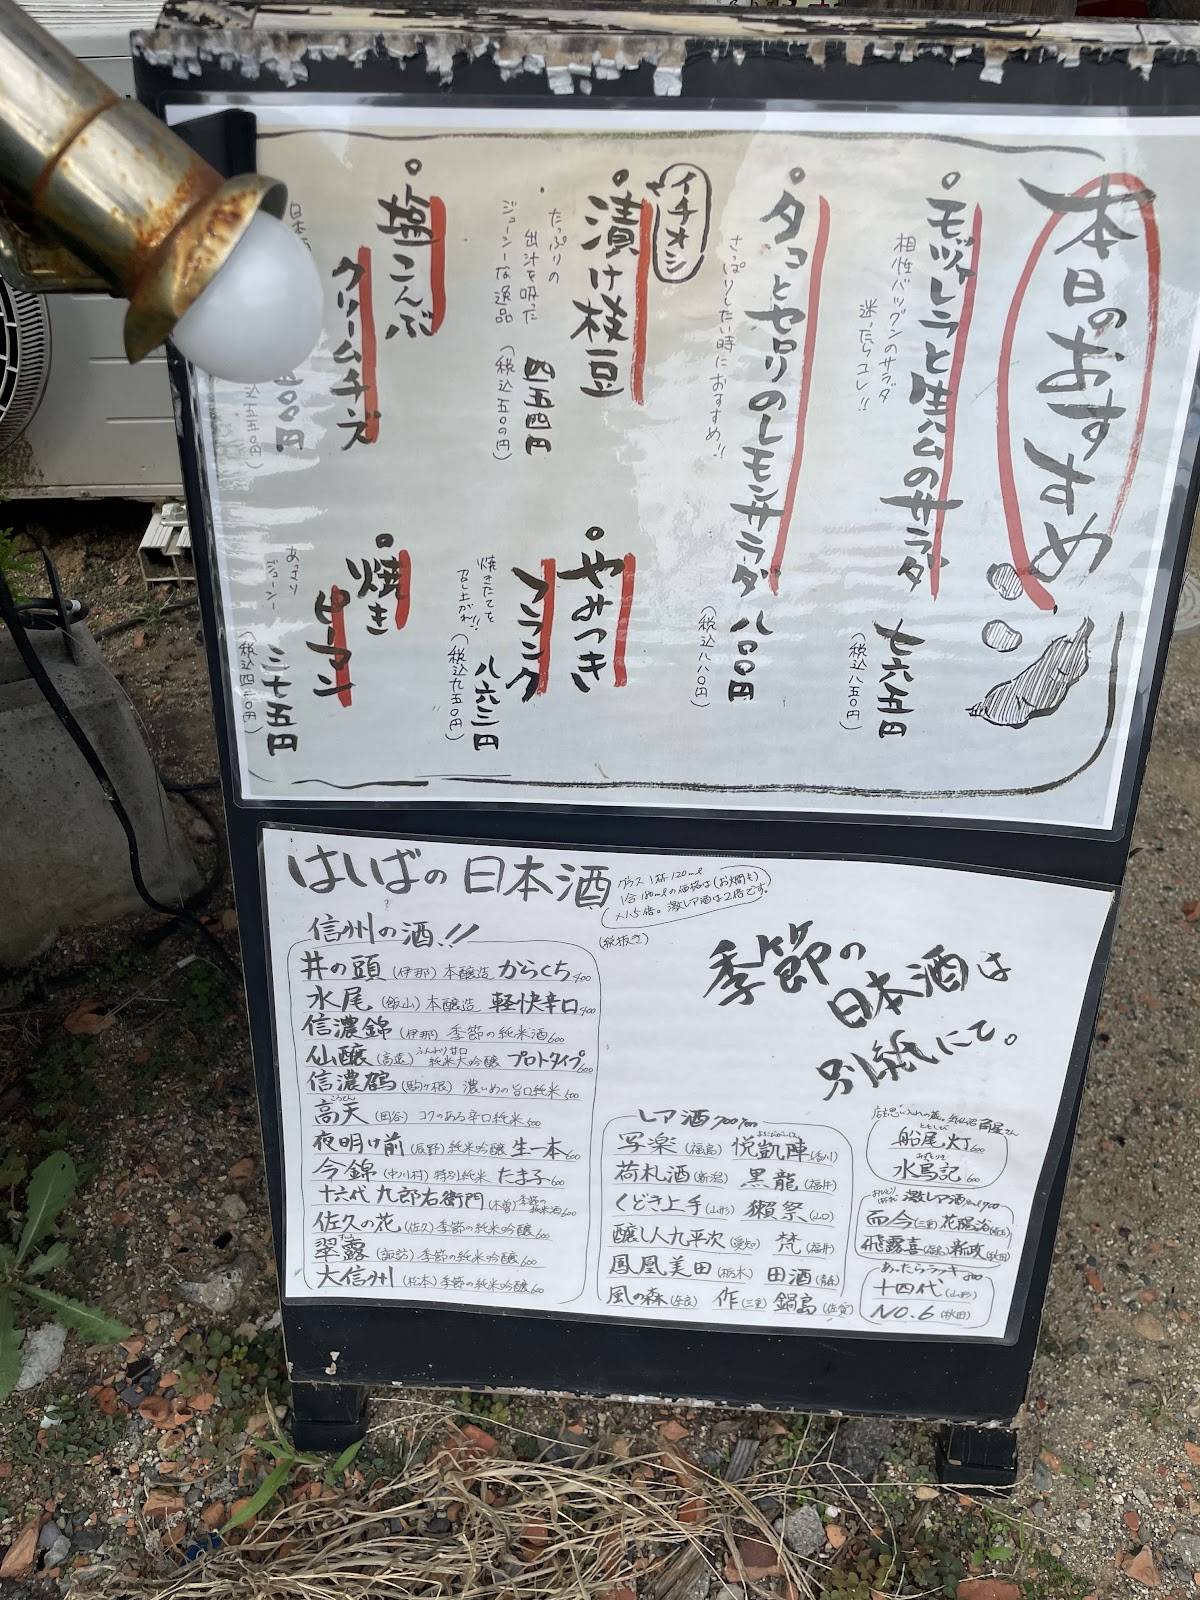 本日のおすすめ
モッツァレラと生ハムのサラダ
相性バツグンのサラダ
迷ったらコレ!!
七六五円
(税込八五〇円)
タコとセロリのレモンサラダ
さっぱりしたい時におすすめ!!
八〇〇円
(税込八八〇円)
イチオシ
漬け枝豆
たっぷりの
出汁を吸った
ジューシーな逸品
四五四円
(税込五〇〇円)
やみつき
フランク
焼きたてを
召し上がれ!!
八六三円
(税込九五〇円)
塩こんぶ
クリームチーズ
日本
五〇〇円
込五五〇円)
焼き
ピーマン
あっさり
ジューシー
三七五円
(税込四一〇円)
はしばの日本酒
グラス1杯120ml
1合180mlの価格は(お燗も)
×1.5倍。激レア酒は2倍です。
(税抜き)
信州の酒!!
井の頭(伊那)本醸造 からくち400
水尾(飯山)本醸造 軽快辛口400
信濃錦(伊那)季節の純米酒600
仙醸(高遠)ふんわり甘口 純米大吟醸 プロトタイプ600
信濃鶴(駒ヶ根)濃いめの旨口純米500
高天(岡谷)コクのある辛口純米500
夜明け前(辰野)純米吟醸 生一本600
今錦(中川村)特別純米 たま子600
十六代九郎右衛門(木曽)季節の純米酒600
佐久の花(佐久)季節の純米吟醸600
翠露(諏訪)季節の純米吟醸600
大信州(松本)季節の純米吟醸600
季節の
日本酒は
別紙にて。
レア酒700
写楽(福島) 悦凱陣(香川)
荷札酒(新潟) 黒龍(福井)
くどき上手(山形) 獺祭(山口)
醸し人九平次(愛知) 梵(福井)
鳳凰美田(栃木) 田酒(青森)
風の森(奈良) 作(三重) 鍋島(佐賀)
船尾灯600
水馬記600
激レア酒
而今(三重)花陽浴(埼玉)
飛露喜(福島)新政(秋田)
あったらラッキー
十四代(山形)
NO.6(秋田)